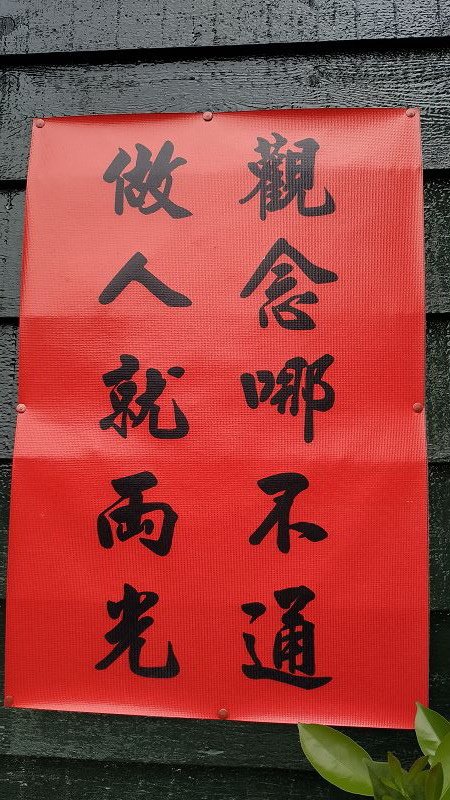 觀念哪不通
做人就両光